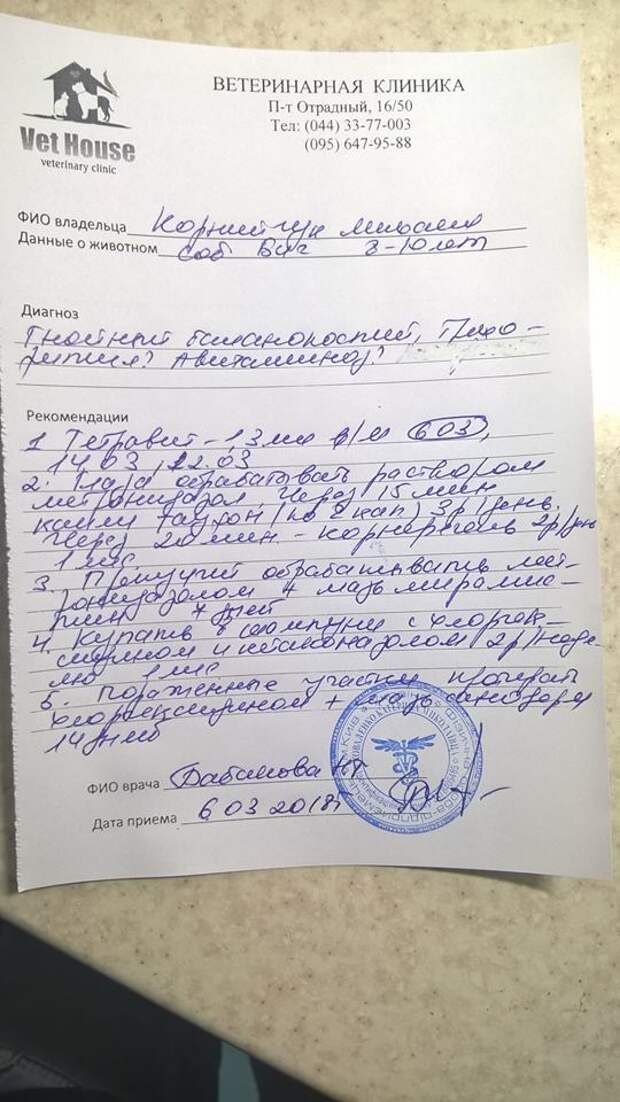 Vet House
veterinary clinic
ВЕТЕРИНАРНАЯ КЛИНИКА
П-т Отрадный, 16/50
Тел: (044) 33-77-003
(095) 647-95-88
ФИО владельца Корнийчук
Данные о животном соб 8-10 лет
Диагноз
Гнойный баланопостит,
Авитаминоз?
Рекомендации
1. Тетравит - 1,3 мл в/м 6 03,
14 03, 22.03
2. Глаза обрабатывать раствором
метронидазол. Через 15 мин
капли Тауфон (по 2 кап) 3р/день.
Через 20 мин - корнерегель 2р/день
1 мес
3. Препуций обрабатывать мет-
ронидазолом + мазь мирамис-
тин 7 дней
4. Купать шампуни с хлоргек-
сидином и кетоконазолом 2р/неде-
лю 1 мес
5. Пораженные участки протирать
хлоргексидином + мазь
14 дней
ФИО врача
Дата приема 6 03 2018г